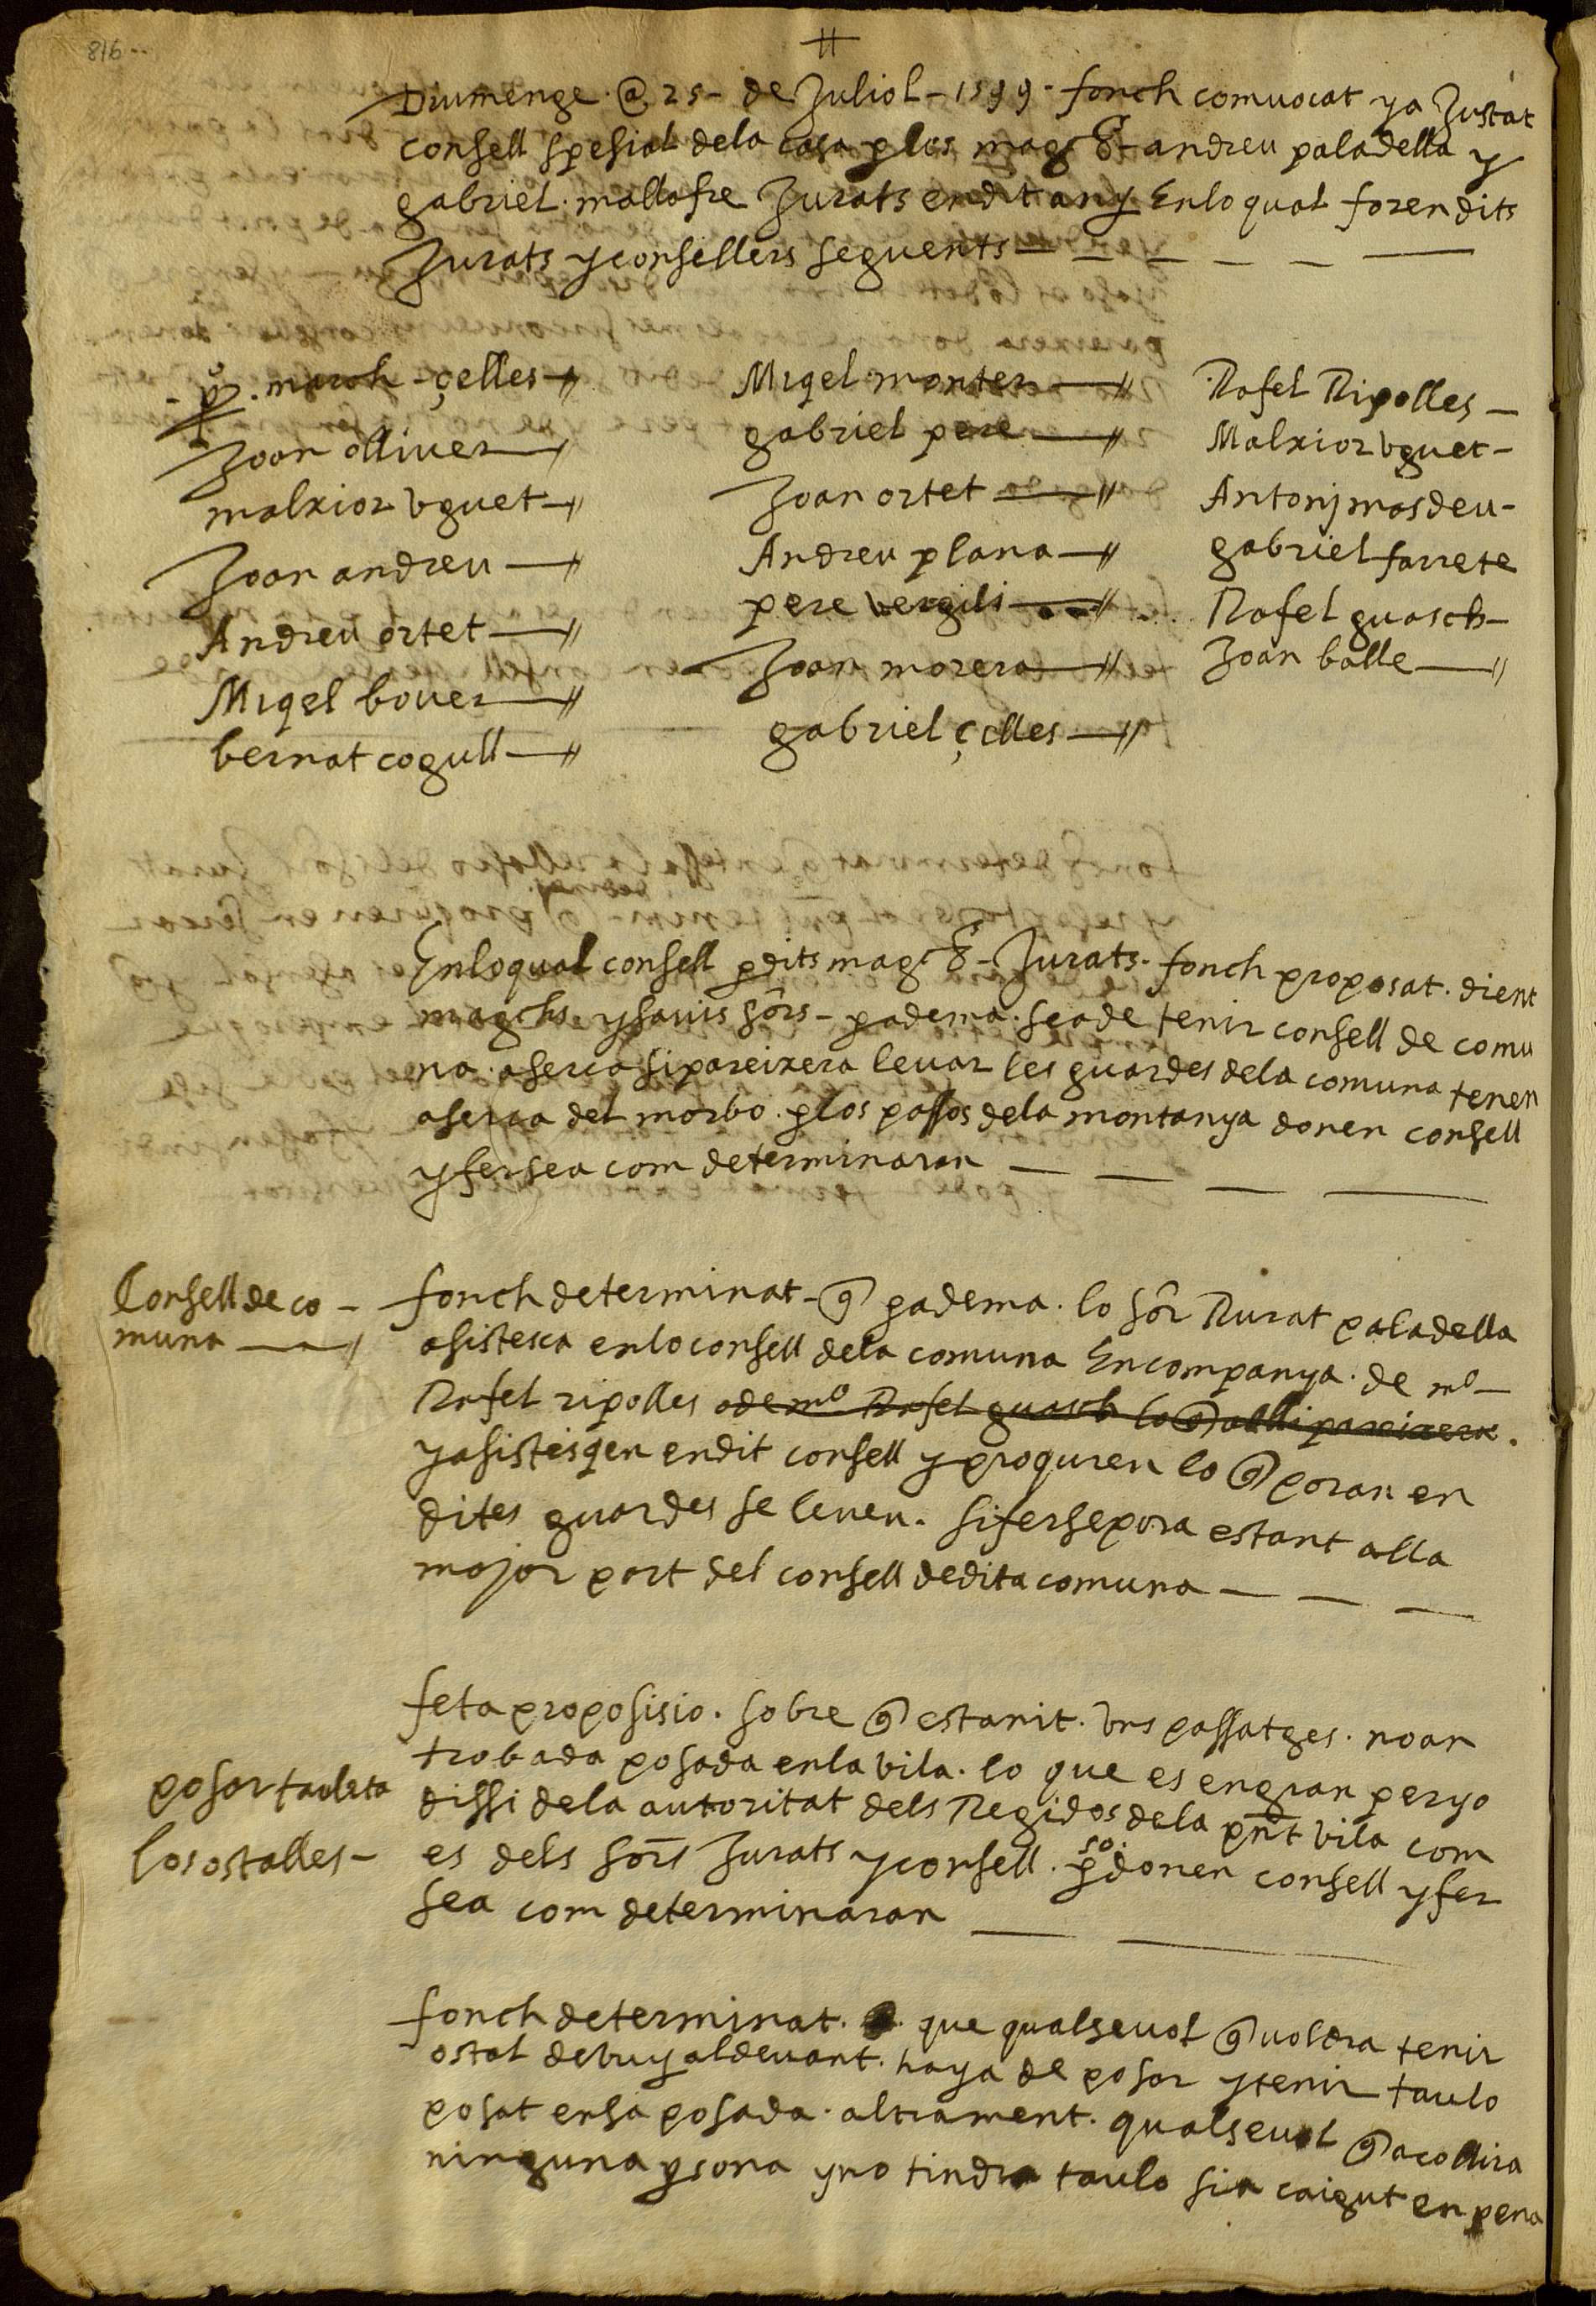 816
Diumenge @ 25 - de Juliol - 1599 - fonch comuocat y a Justat
consell spesial dela casa p los mag.chs - andreu paladella y
gabriel mallofre Jurats en dit any En lo qual foren dits
Jurats y consellers seguents
pº. march - çelles
Joan olliuer
malxior vguet
Joan andreu
Andreu ortet
Miqel bouer
bernat cogull
Miqel monter
gabriel pere
Joan ortet
Andreu plana
pere vergili
Joan morera
gabriel çelles
Rafel Ripolles
Malxior vguet
Antonj masdeu
gabriel farrete
Rafel guasch
Joan balle
En lo qual consell p dits mag.chs - Jurats - fonch proposat. dient
magchs y sauis sors - p a dema. sea de tenir consell de comu
na. aserca si pareixera leuar les guardes dela comuna tenen
aserca del morbo. p los passos dela montanya donen consell
y fersea com determinaran
Consell de co -
muna
fonch determinat - q p a dema. lo sor Rurat paladella
asistesca en lo consell dela comuna En companya. de mº
Rafel ripolles o de mº Rafel guasch lo q alli pareixera.
y asistesqen en dit consell y proquren lo q poran en
dites guardes se leuen. si fer se pora estant alla
major part del consell de dita comuna
feta proposisio. sobre q esta nit. vns passatges. no an
trobada posada en la vila. lo que es en gran perjo
dissi dela autoritat dels Regidos dela pnt vila com
es dels sors Jurats y consell. p so. donen consell y fer
sea com determinaran
posar tauleta
los ostalles -
fonch determinat. que qualseuol q uoldra tenir
ostal de vuy al deuant. haya de posar y tenir taulo
posat en sa posada. altrament. qualseuol q acollira
ninguna psona y no tindra taulo sia caigut en pena